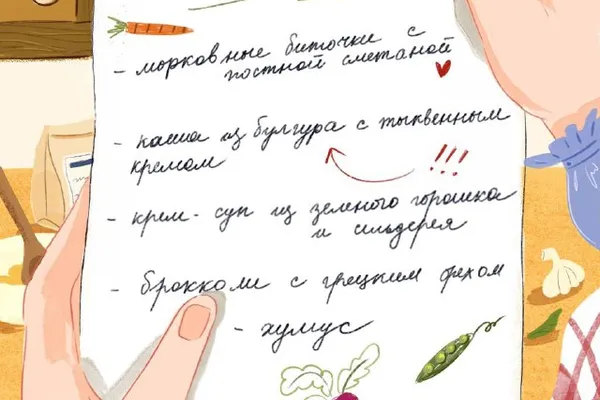 - морковные биточки с
постной сметаной
- каша из булгура с тыквенным
кремом
!!!
- крем-суп из зеленого горошка
и сельдерея
- брокколи с грецким орехом
- хумус